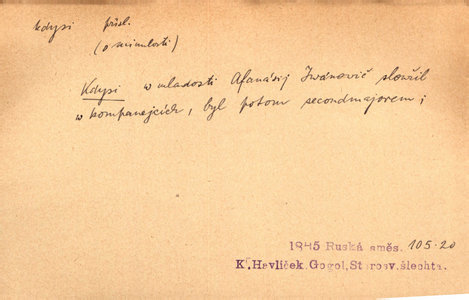 kdysi přísl.
(o minulosti)
Kdysi w mladosti Afanásij Iwánowič sloužil
w kompanejcích, byl potom secondmajorem;
1845 Ruská směs. 105.20
K. Havlíček. Gogol, Starosv. šlechta.